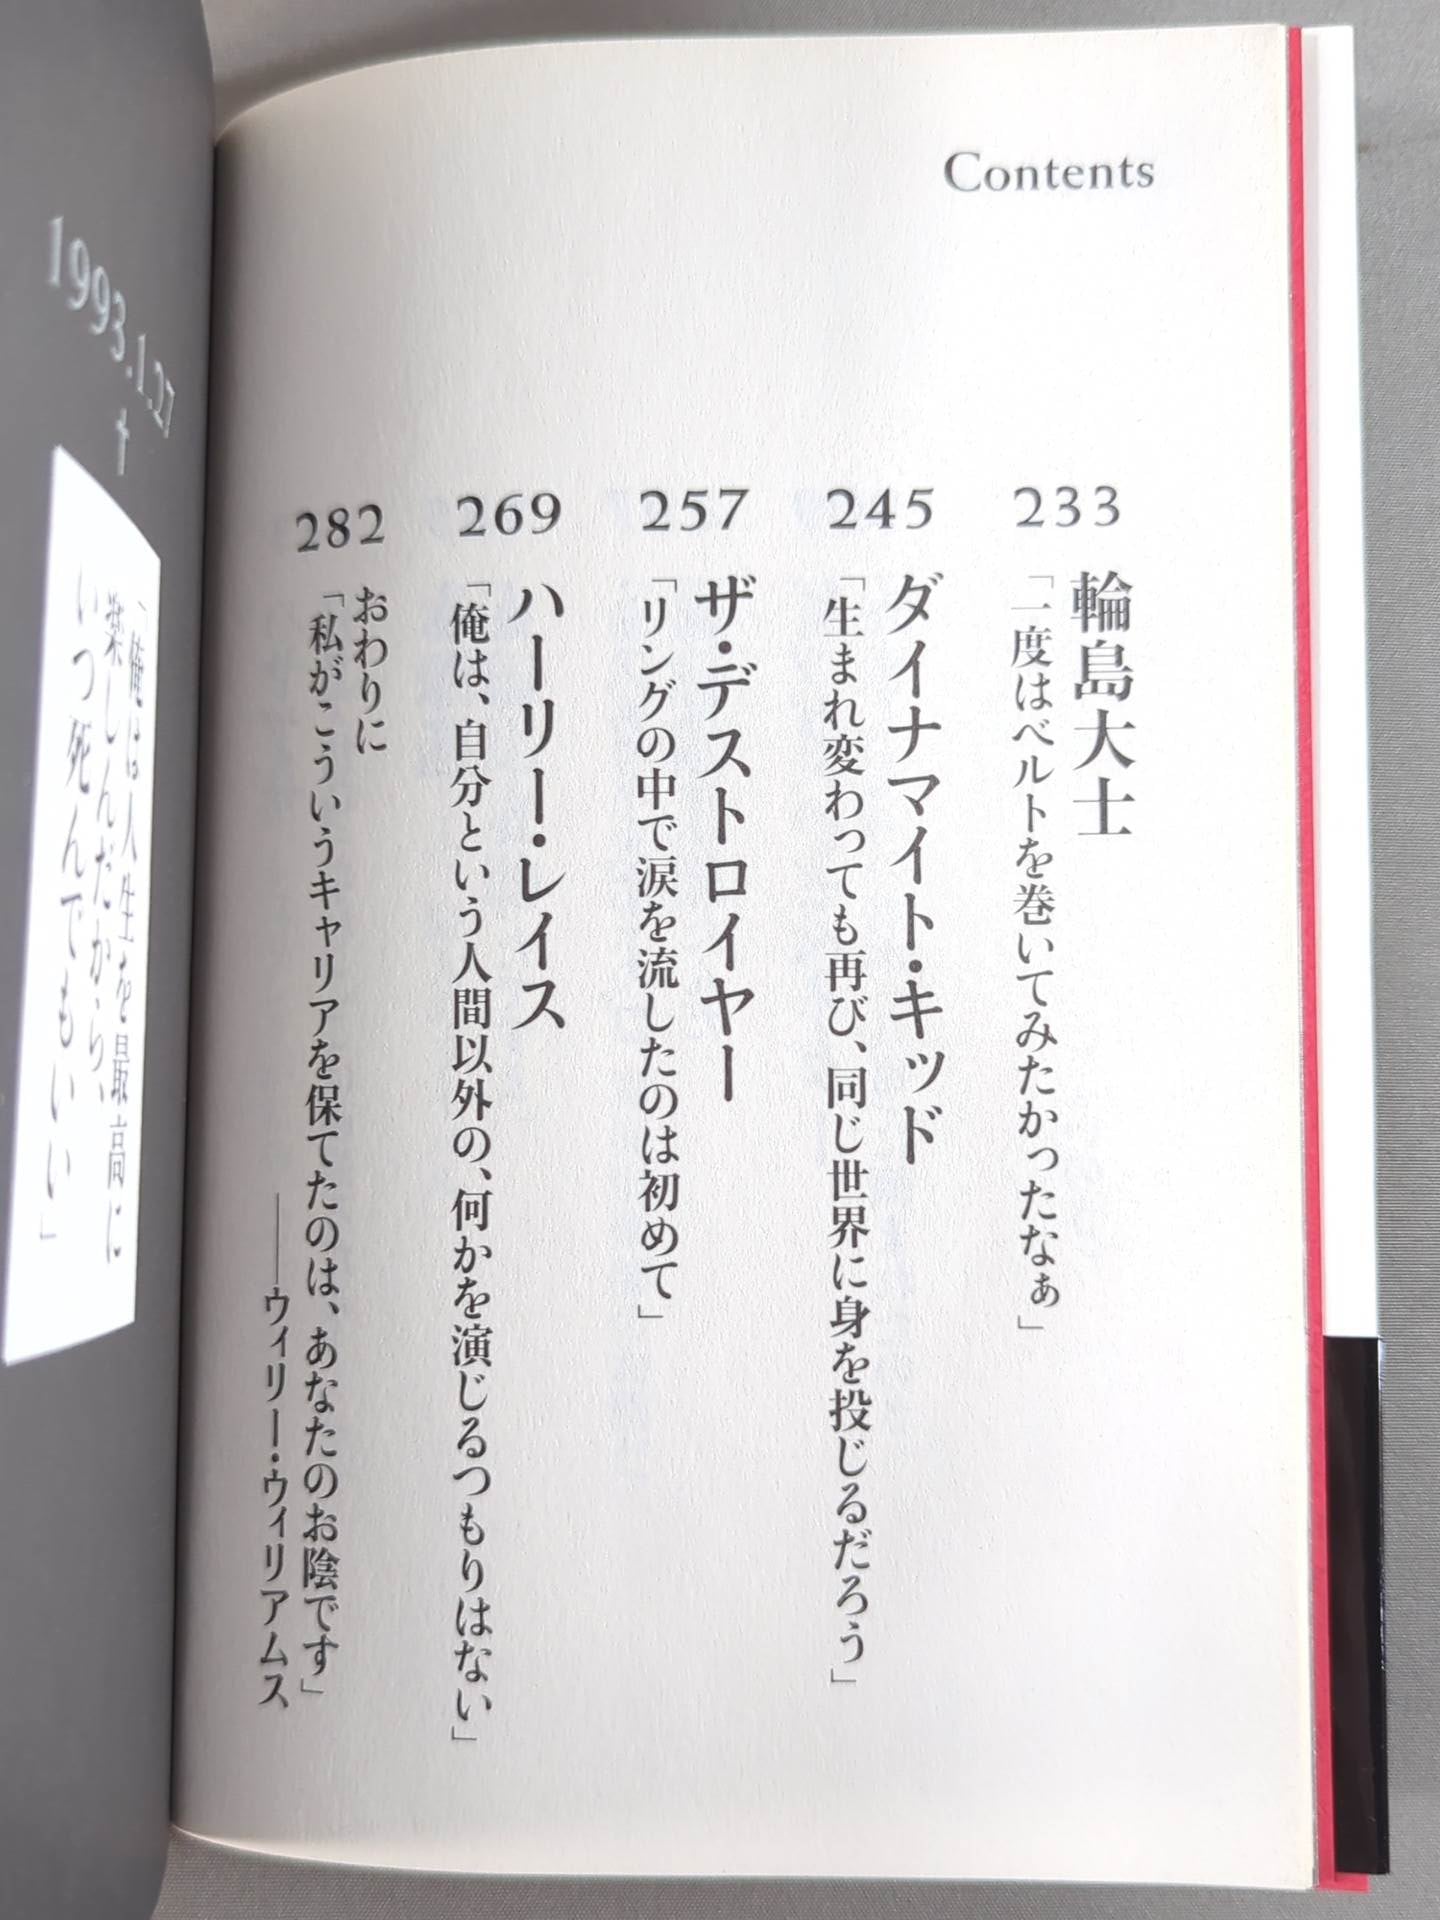 Contents
233
輪島大士
「一度はベルトを巻いてみたかったなぁ」
245
ダイナマイト・キッド
「生まれ変わっても再び、同じ世界に身を投じるだろう」
257
ザ・デストロイヤー
「リングの中で涙を流したのは初めて」
269
ハーリー・レイス
「俺は、自分という人間以外の、何かを演じるつもりはない」
282
おわりに
「私がこういうキャリアを保てたのは、あなたのお陰です」
――ウィリー・ウィリアムス
1993.1.27
†
「俺は人生を最高に
楽しんだから、
いつ死んでもいい」